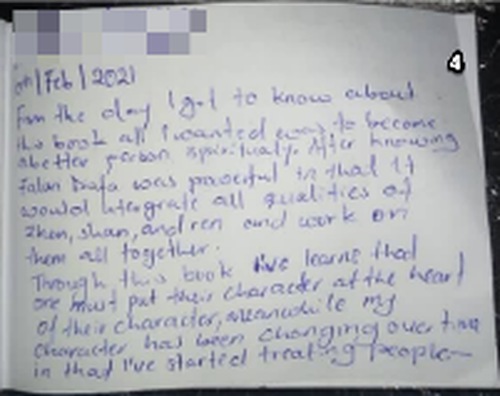 4
/Feb/2021
From the day I got to know about
this book all I wanted was to become
a better person spiritually. After knowing
Falun Dafa was powerful in that it
would intergrate all qualities of
Zhen, shan, and ren and work on
them all together.
Through this book I've learnt that
one must put their character at the heart
of their character, meanwhile my
character has been changing over time
in that I've started treating people